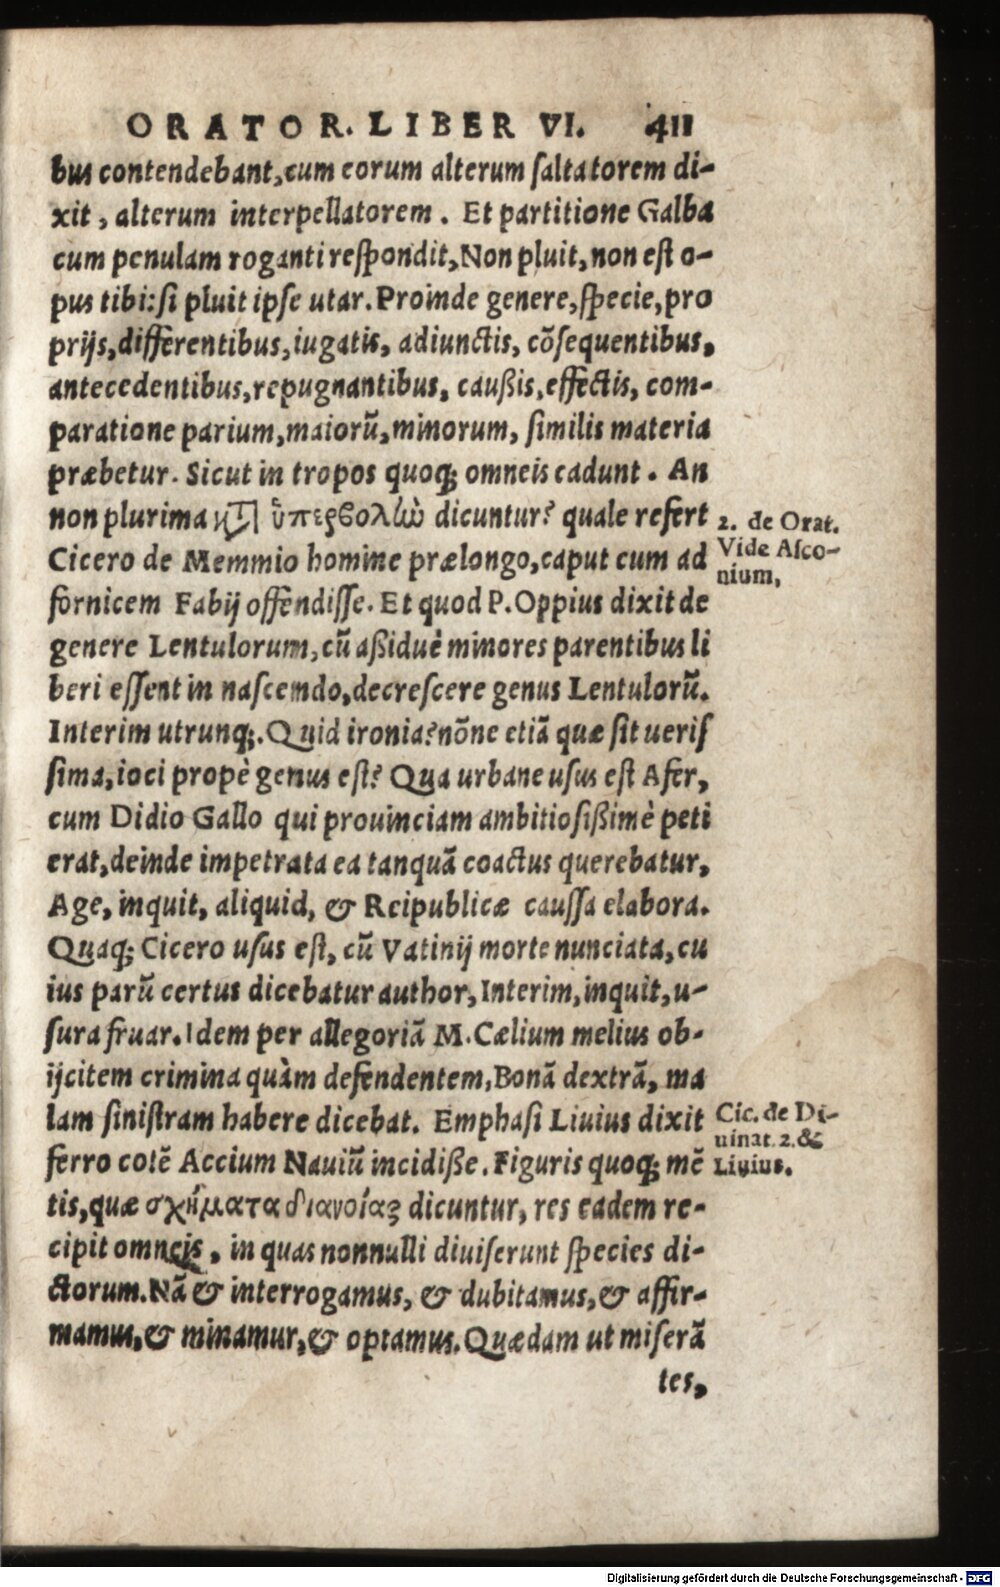 ORATOR. LIBER VI. 411
bus contendebant, cum eorum alterum saltatorem di-
xit, alterum interpellatorem. Et partitione Galba
cum penulam roganti respondit, Non pluit, non est o-
pus tibi: si pluit ipse utar. Proinde genere, specie, pro
prijs, differentibus, iugatis, adiunctis, cõsequentibus,
antecedentibus, repugnantibus, caußis, effectis, com-
paratione parium, maiorũ, minorum, similis materia
præbetur. Sicut in tropos quoq; omneis cadunt. An
non plurima ὑπερβολὼ dicuntur? quale refert
2. de Orat.
Vide Asco-
nium,
Cicero de Memmio homine prælongo, caput cum ad
fornicem Fabij offendisse. Et quod P. Oppius dixit de
genere Lentulorum, cũ aßiduè minores parentibus li
beri essent in nascemdo, decrescere genus Lentulorũ.
Interim utrunq;. Quid ironia? nõne etiã quæ sit ueris
sima, ioci propè genus est? Qua urbane usus est Afer,
cum Didio Gallo qui prouinciam ambitiosißimè peti
erat, deinde impetrata ea tanquã coactus querebatur,
Age, inquit, aliquid, & Reipublicæ caussa elabora.
Quaq; Cicero usus est, cũ Vatinij morte nunciata, cu
ius parũ certus dicebatur author, Interim, inquit, u-
sura fruar. Idem per allegoriã M. Cælium melius ob-
ijcitem crimina quàm defendentem, Bonã dextrã, ma
lam sinistram habere dicebat. Emphasi Liuius dixit
Cic. de Di-
uinat. 2. &
Liuius.
ferro cotẽ Accium Nauiũ incidiße. Figuris quoq; mẽ
tis, quæ σχήματα διανοίας dicuntur, res eadem re-
cipit omneis, in quas nonnulli diuiserunt species di-
ctorum. Nã & interrogamus, & dubitamus, & affir-
mamus, & minamur, & optamus. Quædam ut miserã
tes,
Digitalisierung gefördert durch die Deutsche Forschungsgemeinschaft - DFG